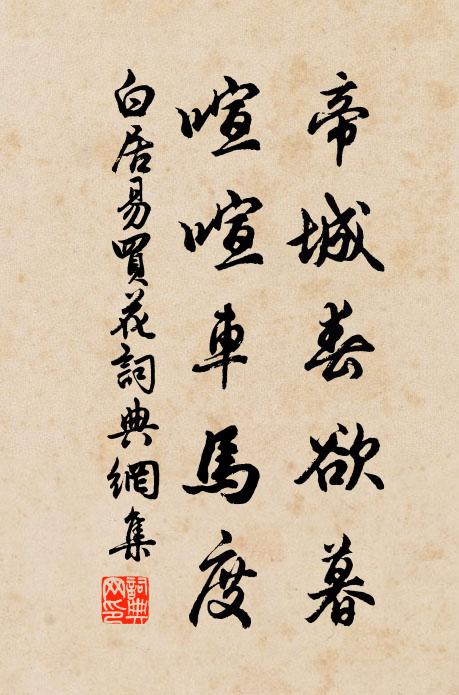 帝城春欲暮
喧喧車馬度
白居易買花詞典網集
詞典網印